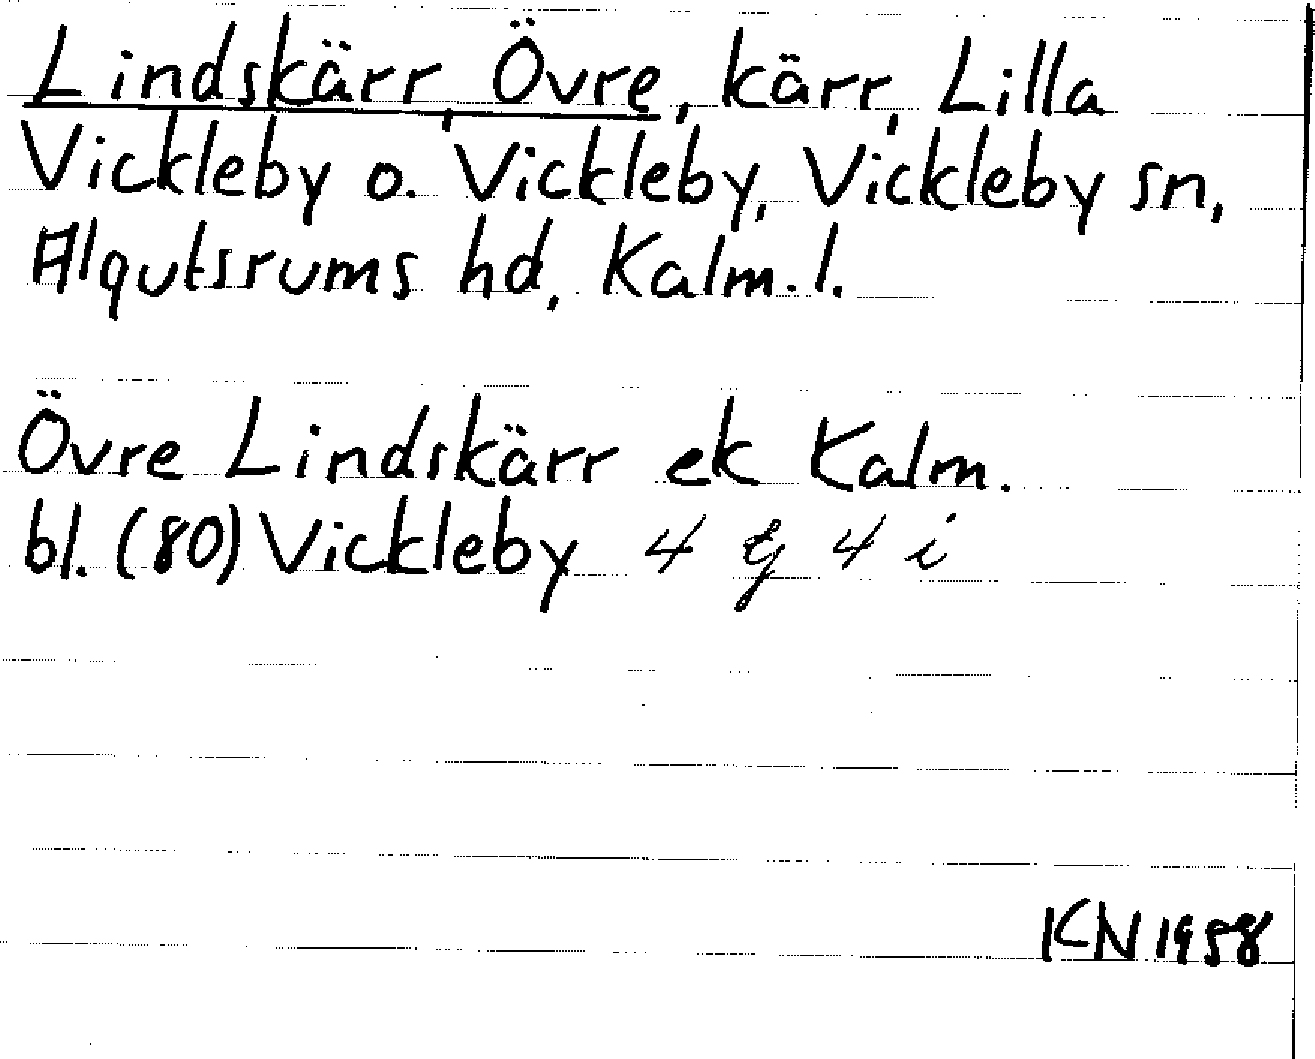 Lindskärr, Övre, kärr, Lilla
Vickleby o. Vickleby, Vickleby sn,
Algutsrums hd, Kalm. l.
Övre Lindskärr ek Kalm.
bl. (80) Vickleby 4 g 4 i
KN 1958